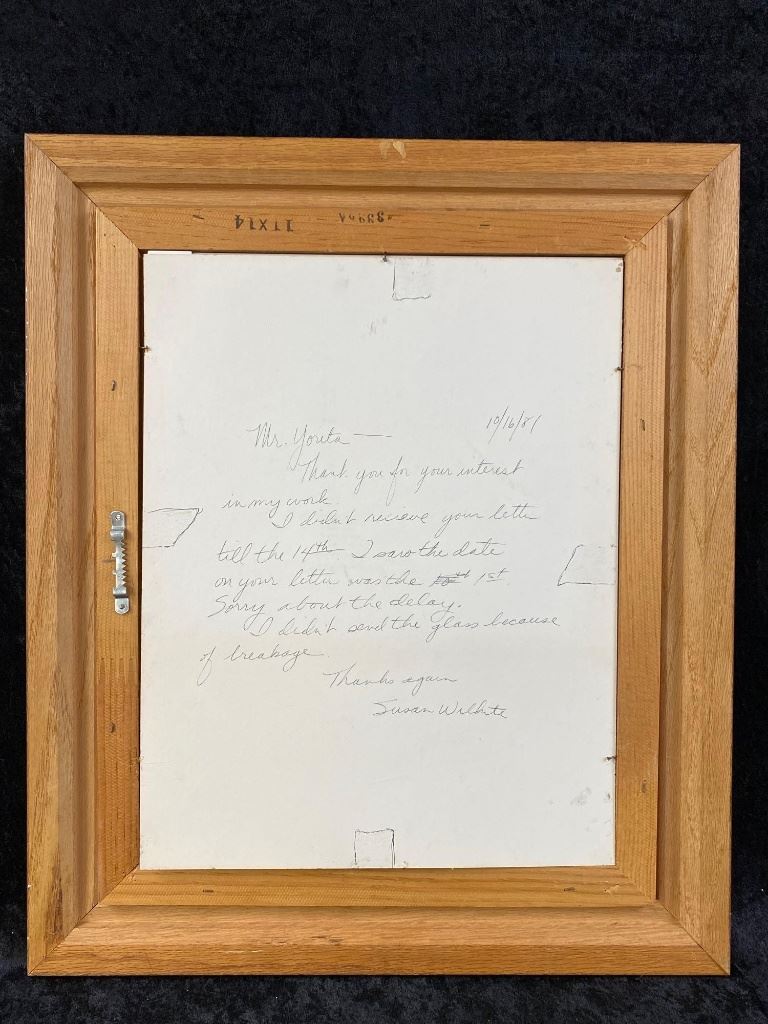 11X14
Mr. Yorita —
10/16/81
Thank you for your interest
in my work.
I didn't recieve your letter
till the 14th. I saw the date
on your letter was the 1st.
Sorry about the delay.
I didn't send the glass because
of breakage.
Thanks again
Susan Wilhite